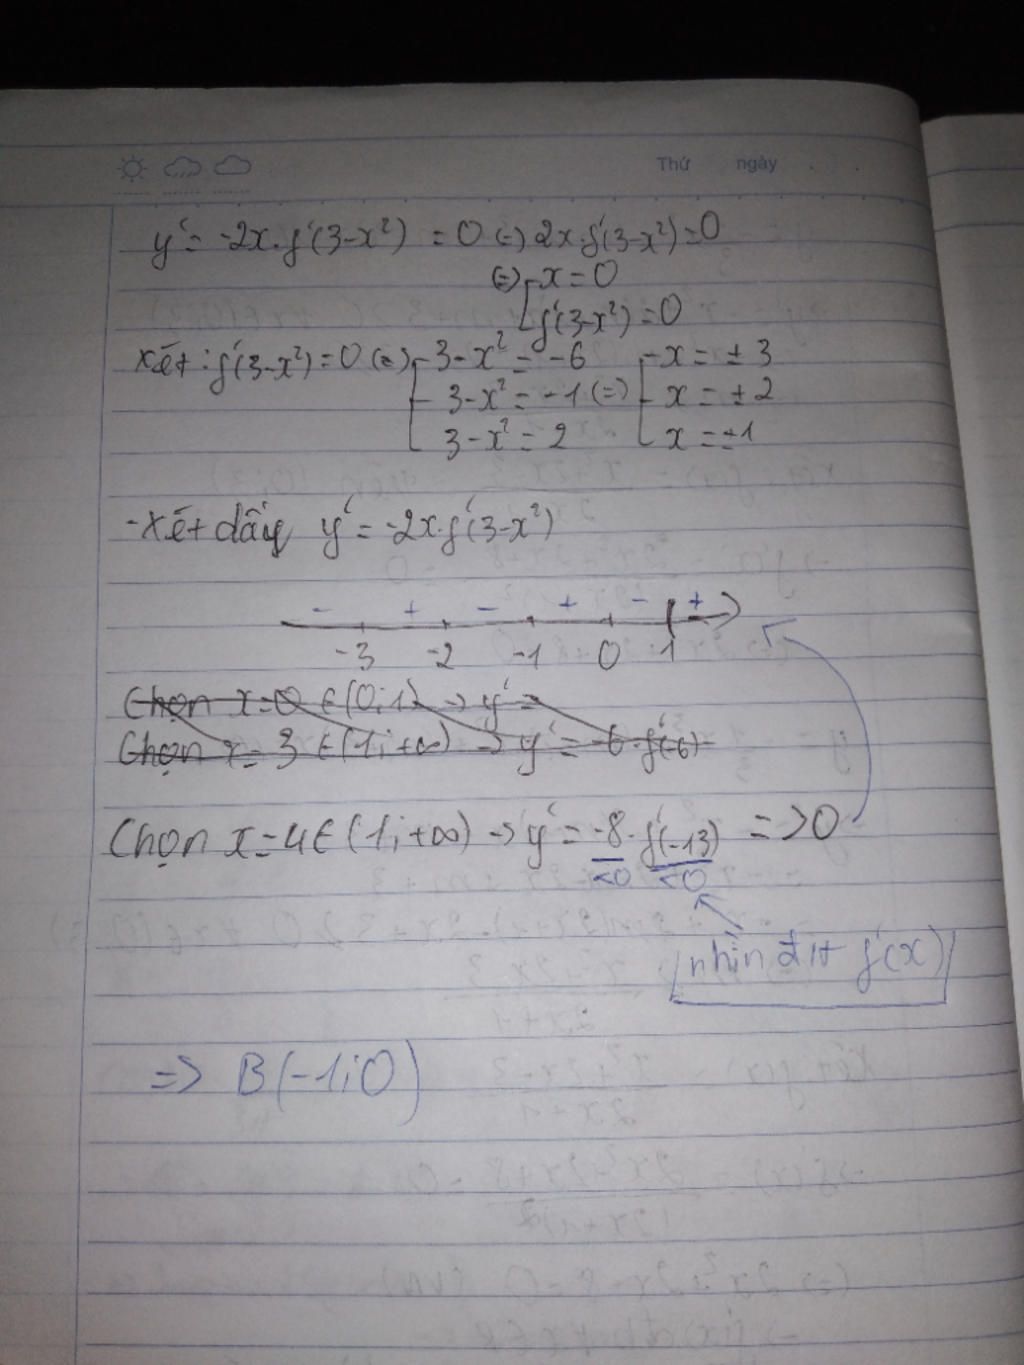 Thứ ngày
y' = -2x.f'(3-x²) = 0 (=) 2x.f'(3-x²)=0
(=) x = 0
f'(3-x²) = 0
Xét : f'(3-x²) = 0 (=) 3-x² = -6 x = ±3
3-x² = -1 (=) x = ±2
3-x² = 2 x = ±1
-Xét dấu y' = -2x.f'(3-x²)
- + - + - +
-3 -2 -1 0 1
Chọn x=0 ∈(0;1) → y' =
Chọn x = 3 ∈(1;+∞) → y' = -6.f'(-6)
Chọn x=4∈(1;+∞) → y' = -8.f'(-13) => 0
<0 <0
nhìn đtt f'(x)
=> B(-1;0)